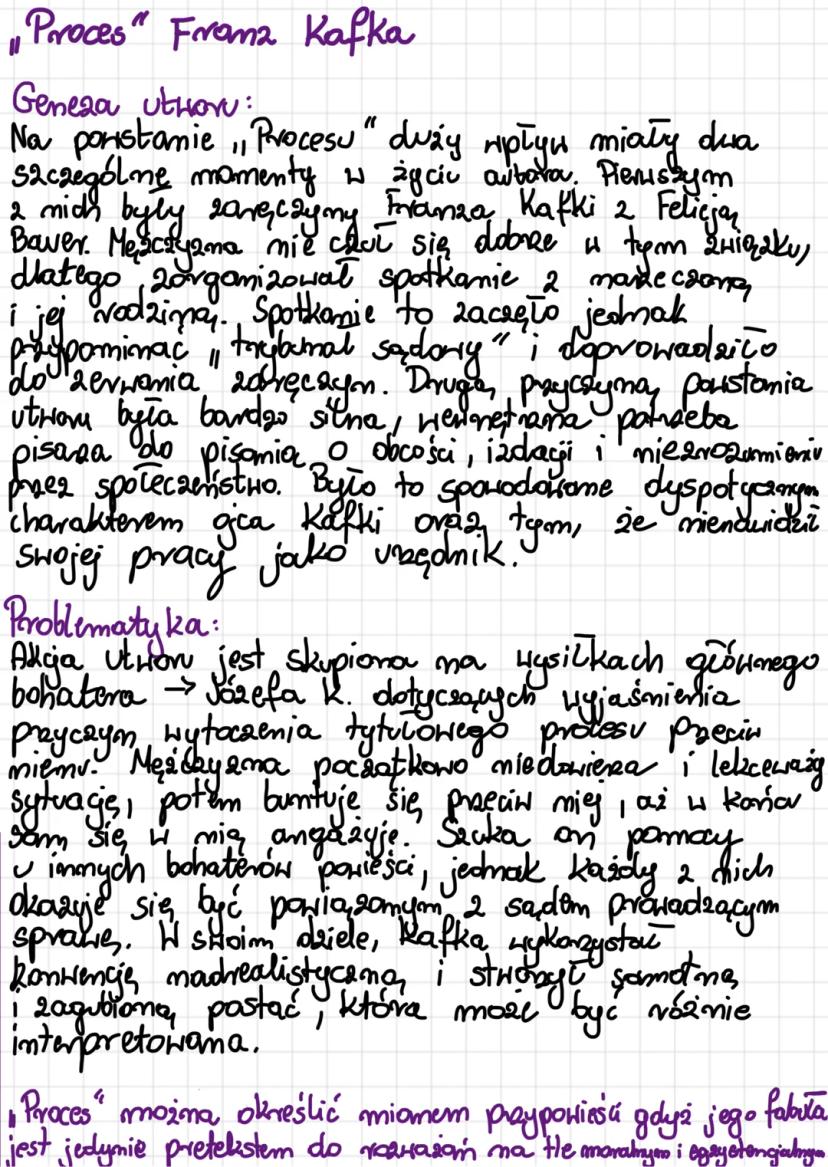 „Proces“ Franz Kafka
Geneza utworu:
Na powstanie „Procesu“ duży wpływ miały dwa
szczególne momenty w życiu autora. Pierwszym
z nich były zaręczyny Franza Kafki z Felicją
Bauer. Mężczyzna nie czuł się dobrze w tym związku,
dlatego zorganizował spotkanie z narzeczoną
i jej rodziną. Spotkanie to zaczęło jednak
przypominać „trybunał sądowy“ i doprowadziło
do zerwania zaręczyn. Drugą przyczyną powstania
utworu była bardzo silna, wewnętrzna potrzeba
pisarza do pisania o obcości, izolacji i niezrozumieniu
przez społeczeństwo. Było to spowodowane dyspotycznym
charakterem ojca Kafki oraz tym, że nienawidził
swojej pracy jako urzędnik.
Problematyka:
Akcja utworu jest skupiona na wysiłkach głównego
bohatera → Józefa K. dotyczących wyjaśnienia
przyczyn wytoczenia tytułowego procesu przeciw
niemu. Mężczyzna początkowo niedowierza i lekceważy
sytuację, potem buntuje się przeciw niej, aż w końcu
sam się w nią angażuje. Szuka on pomocy
u innych bohaterów powieści, jednak każdy z nich
okazuje się być powiązanym z sądem prowadzącym
sprawę. W swoim dziele, Kafka wykorzystał
konwencję nadrealistyczną i stworzył samotną
i zagubioną postać, która może być różnie
interpretowana.
„Proces“ można określić mianem przypowieści gdyż jego fabuła
jest jedynie pretekstem do rozważań na tle moralnym i egzystencjalnym